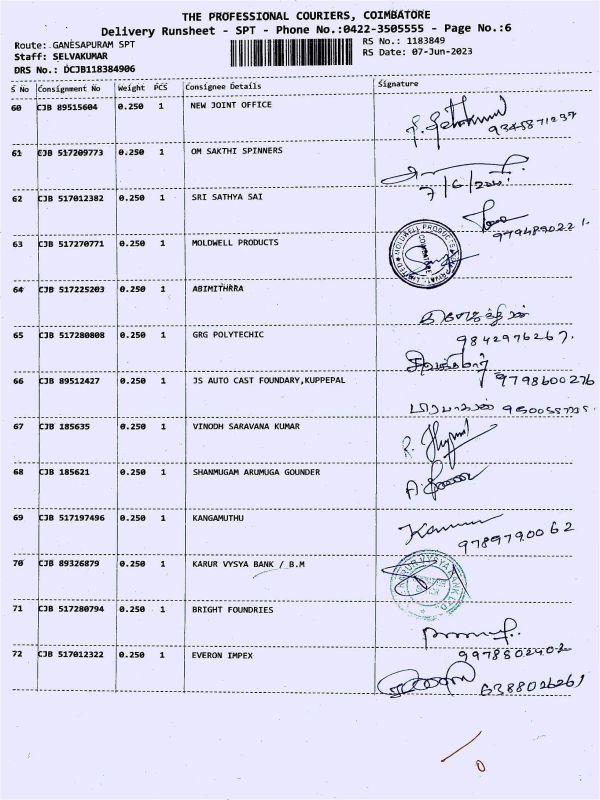 THE PROFESSIONAL COURIERS, COIMBATORE
Delivery Runsheet - SPT - Phone No.:0422-3505555 - Page No.:6
Route: GANESAPURAM SPT
RS No.: 1183849
Staff: SELVAKUMAR
RS Date: 07-Jun-2023
DRS No.: DCJB118384906
S No Consignment No Weight PCS Consignee Details Signature
60 CJB 89515604 0.250 1 NEW JOINT OFFICE
61 CJB 517209773 0.250 1 OM SAKTHI SPINNERS
62 CJB 517012382 0.250 1 SRI SATHYA SAI
63 CJB 517270771 0.250 1 MOLDWELL PRODUCTS
MOLDWELL PRODUCTS
COIMBATORE
64 CJB 517225203 0.250 1 ABIMITHRRA
65 CJB 517280808 0.250 1 GRG POLYTECHIC
9842976267.
66 CJB 89512427 0.250 1 JS AUTO CAST FOUNDARY,KUPPEPAL
9798600276
67 CJB 185635 0.250 1 VINODH SARAVANA KUMAR
68 CJB 185621 0.250 1 SHANMUGAM ARUMUGA GOUNDER
69 CJB 517197496 0.250 1 KANGAMUTHU
9789790062
70 CJB 89326879 0.250 1 KARUR VYSYA BANK / B.M
KARUR VYSYA BANK LTD
71 CJB 517280794 0.250 1 BRIGHT FOUNDRIES
72 CJB 517012322 0.250 1 EVERON IMPEX
9978802402
6388026261